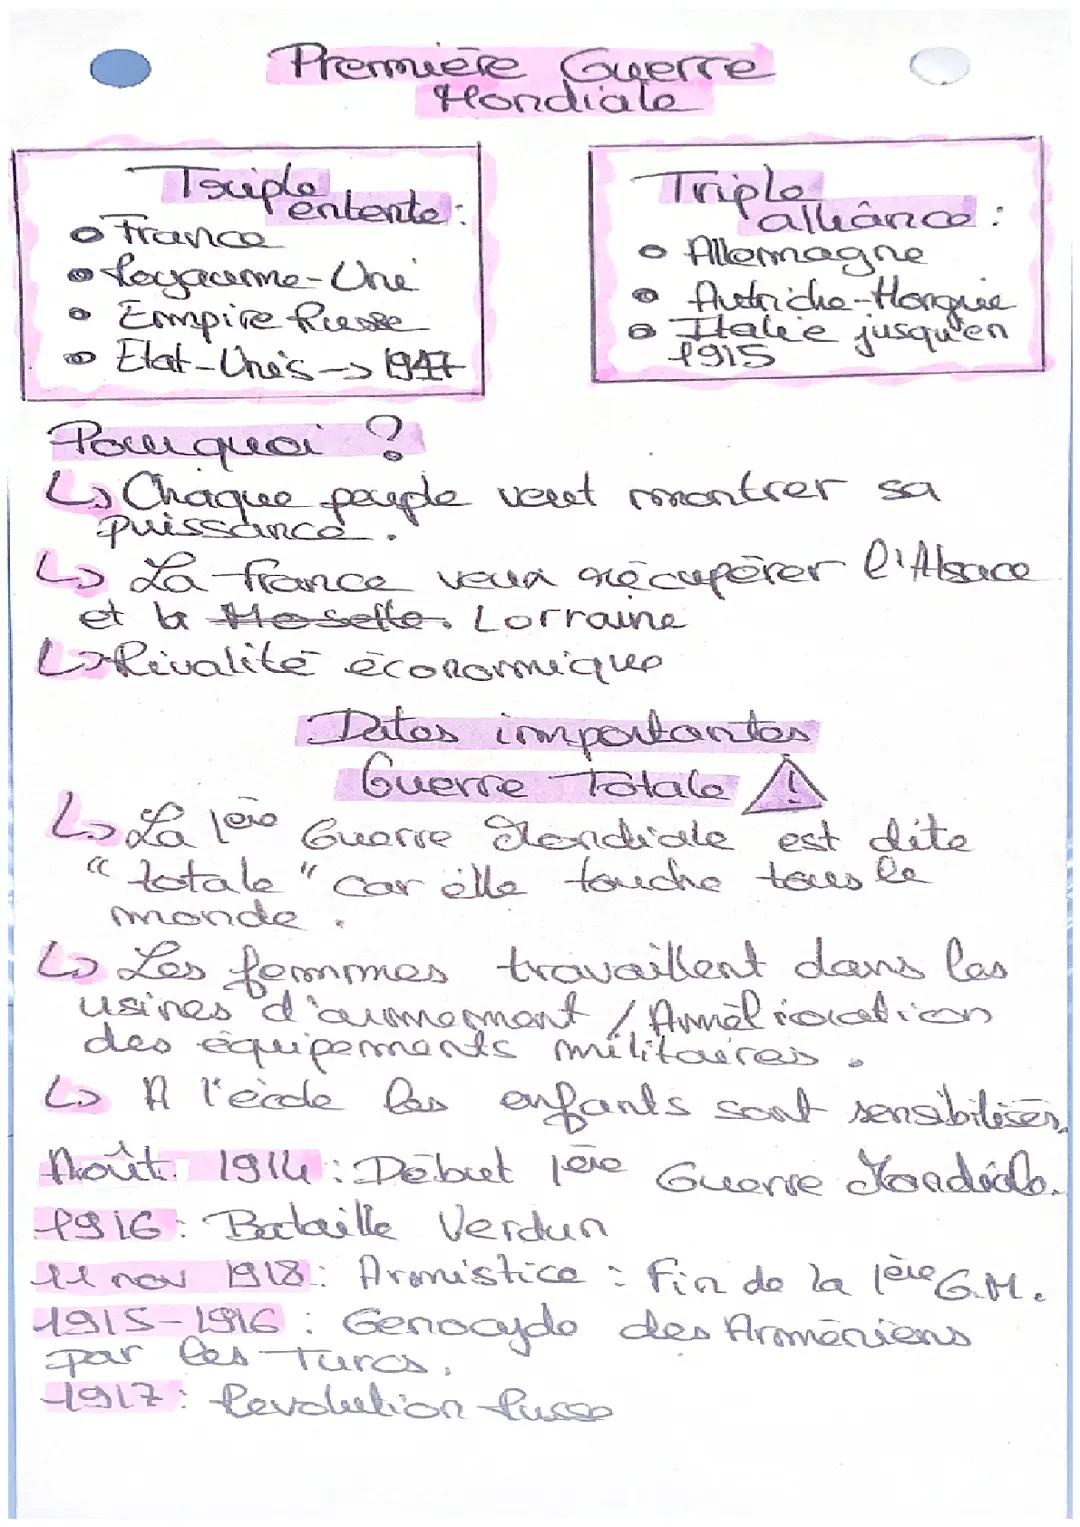 Première Guerre
Mondiale
Triple
entente :
France
Royaume-Uni
Empire Russe
Etat-Unis -> 1917
Triple
alliance :
Allemagne
Autriche-Hongrie
Italie jusqu'en
1915
Pourquoi ?
↳ Chaque peuple veut montrer sa
puissance.
↳ La France veux récupérer l'Alsace
et la Moselle. Lorraine
↳ Rivalité économique
Dates importantes
Guerre Totale !
↳ La 1ère Guerre Mondiale est dite
"totale" car elle touche tous le
monde.
↳ Les femmes travaillent dans les
usines d'armement / Amélioration
des équipements militaires.
↳ A l'école les enfants sont sensibilisés.
Août 1914 : Début 1ère Guerre Mondiale.
1916 : Bataille Verdun
11 nov 1918 : Armistice : Fin de la 1ère G.M.
1915-1916 : Genocyde des Arméniens
par les Turcs.
1917 : Revolution Russe